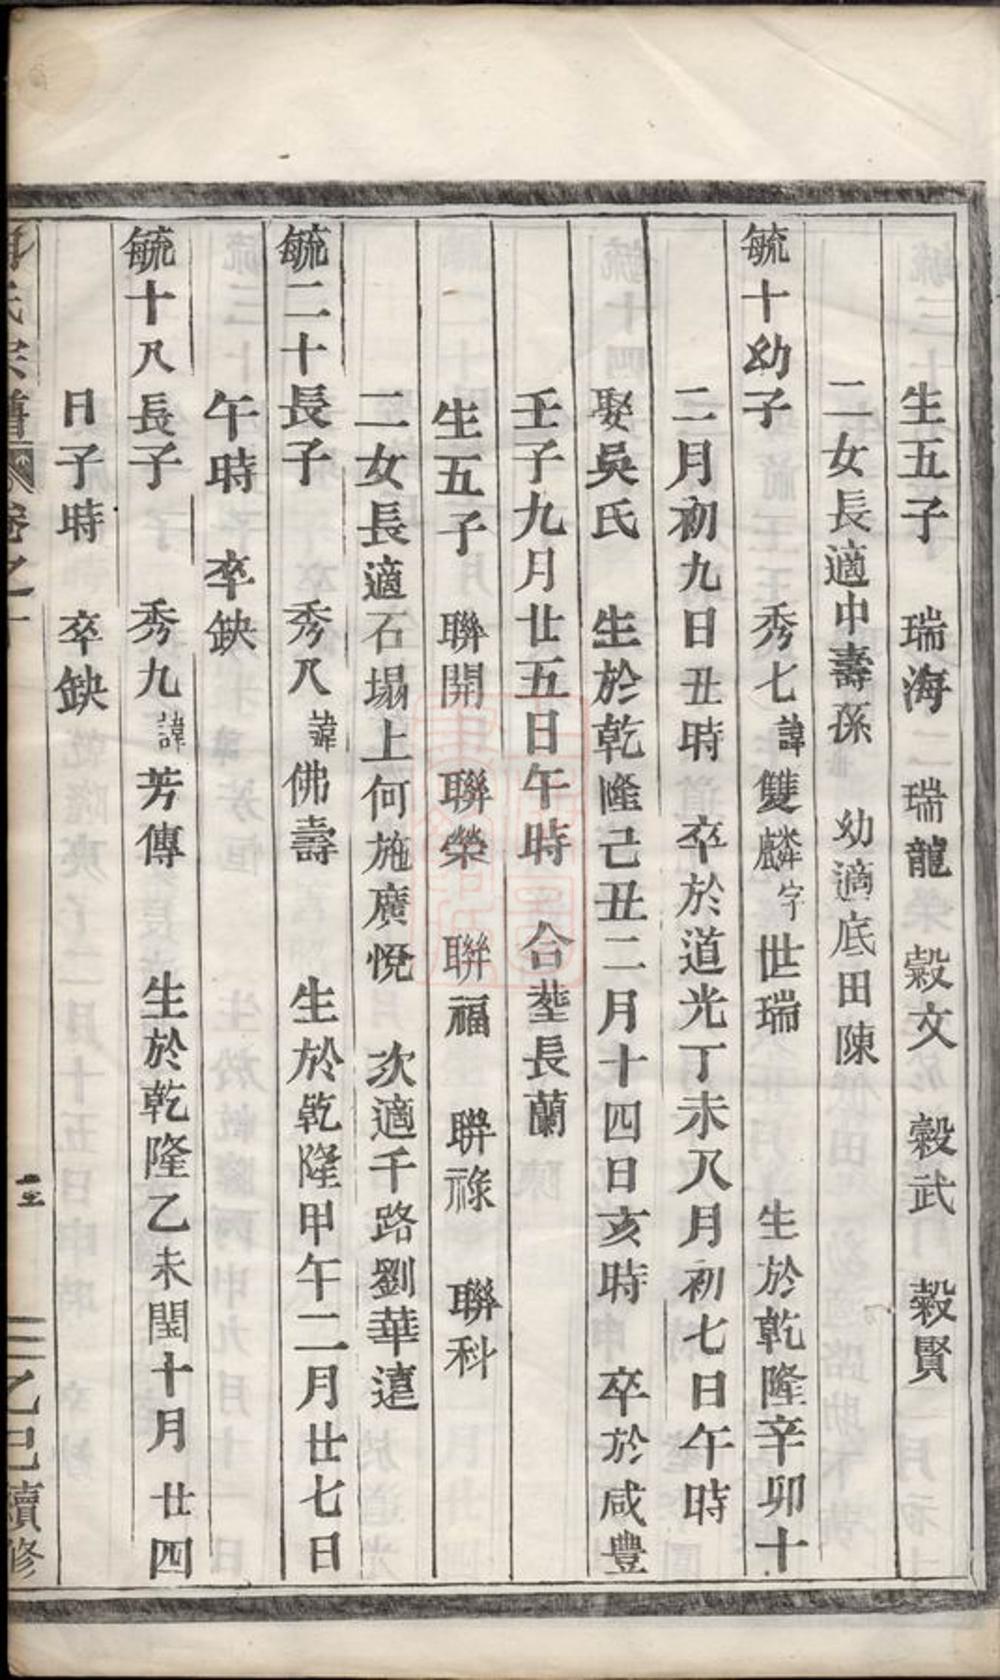 生五子 瑞海 瑞龍 穀文 穀武 穀賢
二女長適中壽孫 幼適底田陳
毓十幼子 秀七諱雙麟字世瑞 生於乾隆辛卯十
二月初九日丑時 卒於道光丁未八月初七日午時
娶吳氏 生於乾隆己丑二月十四日亥時 卒於咸豐
壬子九月廿五日午時 合塟長蘭
生五子 聯開 聯榮 聯福 聯祿 聯科
二女長適石塌上何施廣悅 次適千路劉華遠
毓二十長子 秀八諱佛壽 生於乾隆甲午二月廿七日
午時 卒缺
毓十八長子 秀九諱芳傳 生於乾隆乙未閏十月廿四
日子時 卒缺
氏宗譜 卷之 乙巳續修